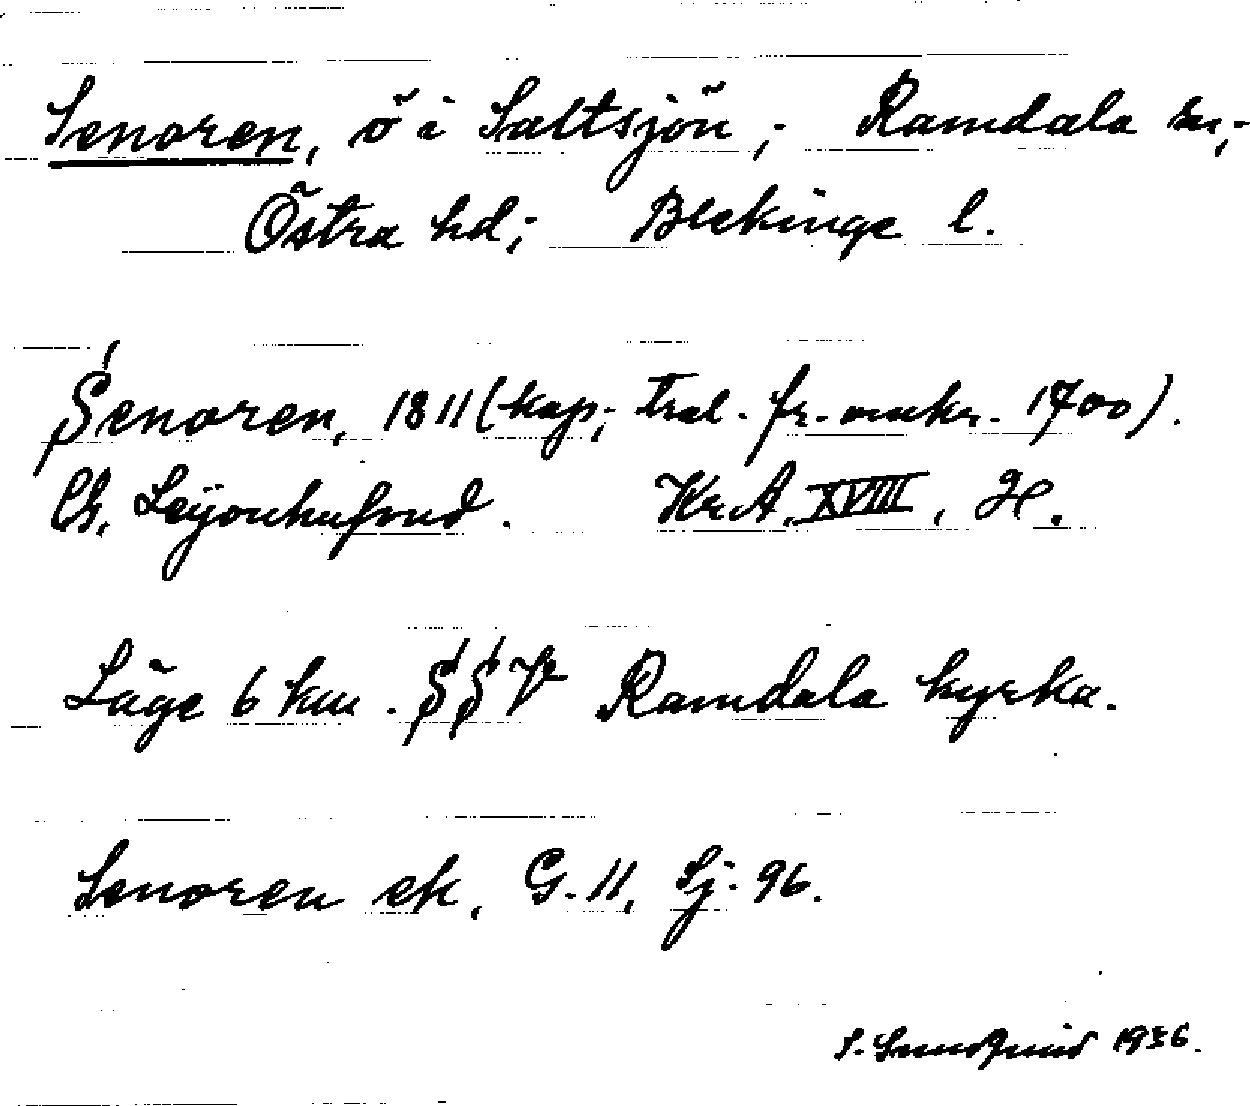 Senoren, ö i Saltsjön; Ramdala sn;
Östra hd; Blekinge l.
Senoren, 1811 (kop; tral. fr. omkr. 1700).
Ch. Leijonhufvud. KrA. XVIII, H.
Läge 6 km. SSV Ramdala kyrka.
Senoren ek. G. 11, Sj. 96.
S. 1936.